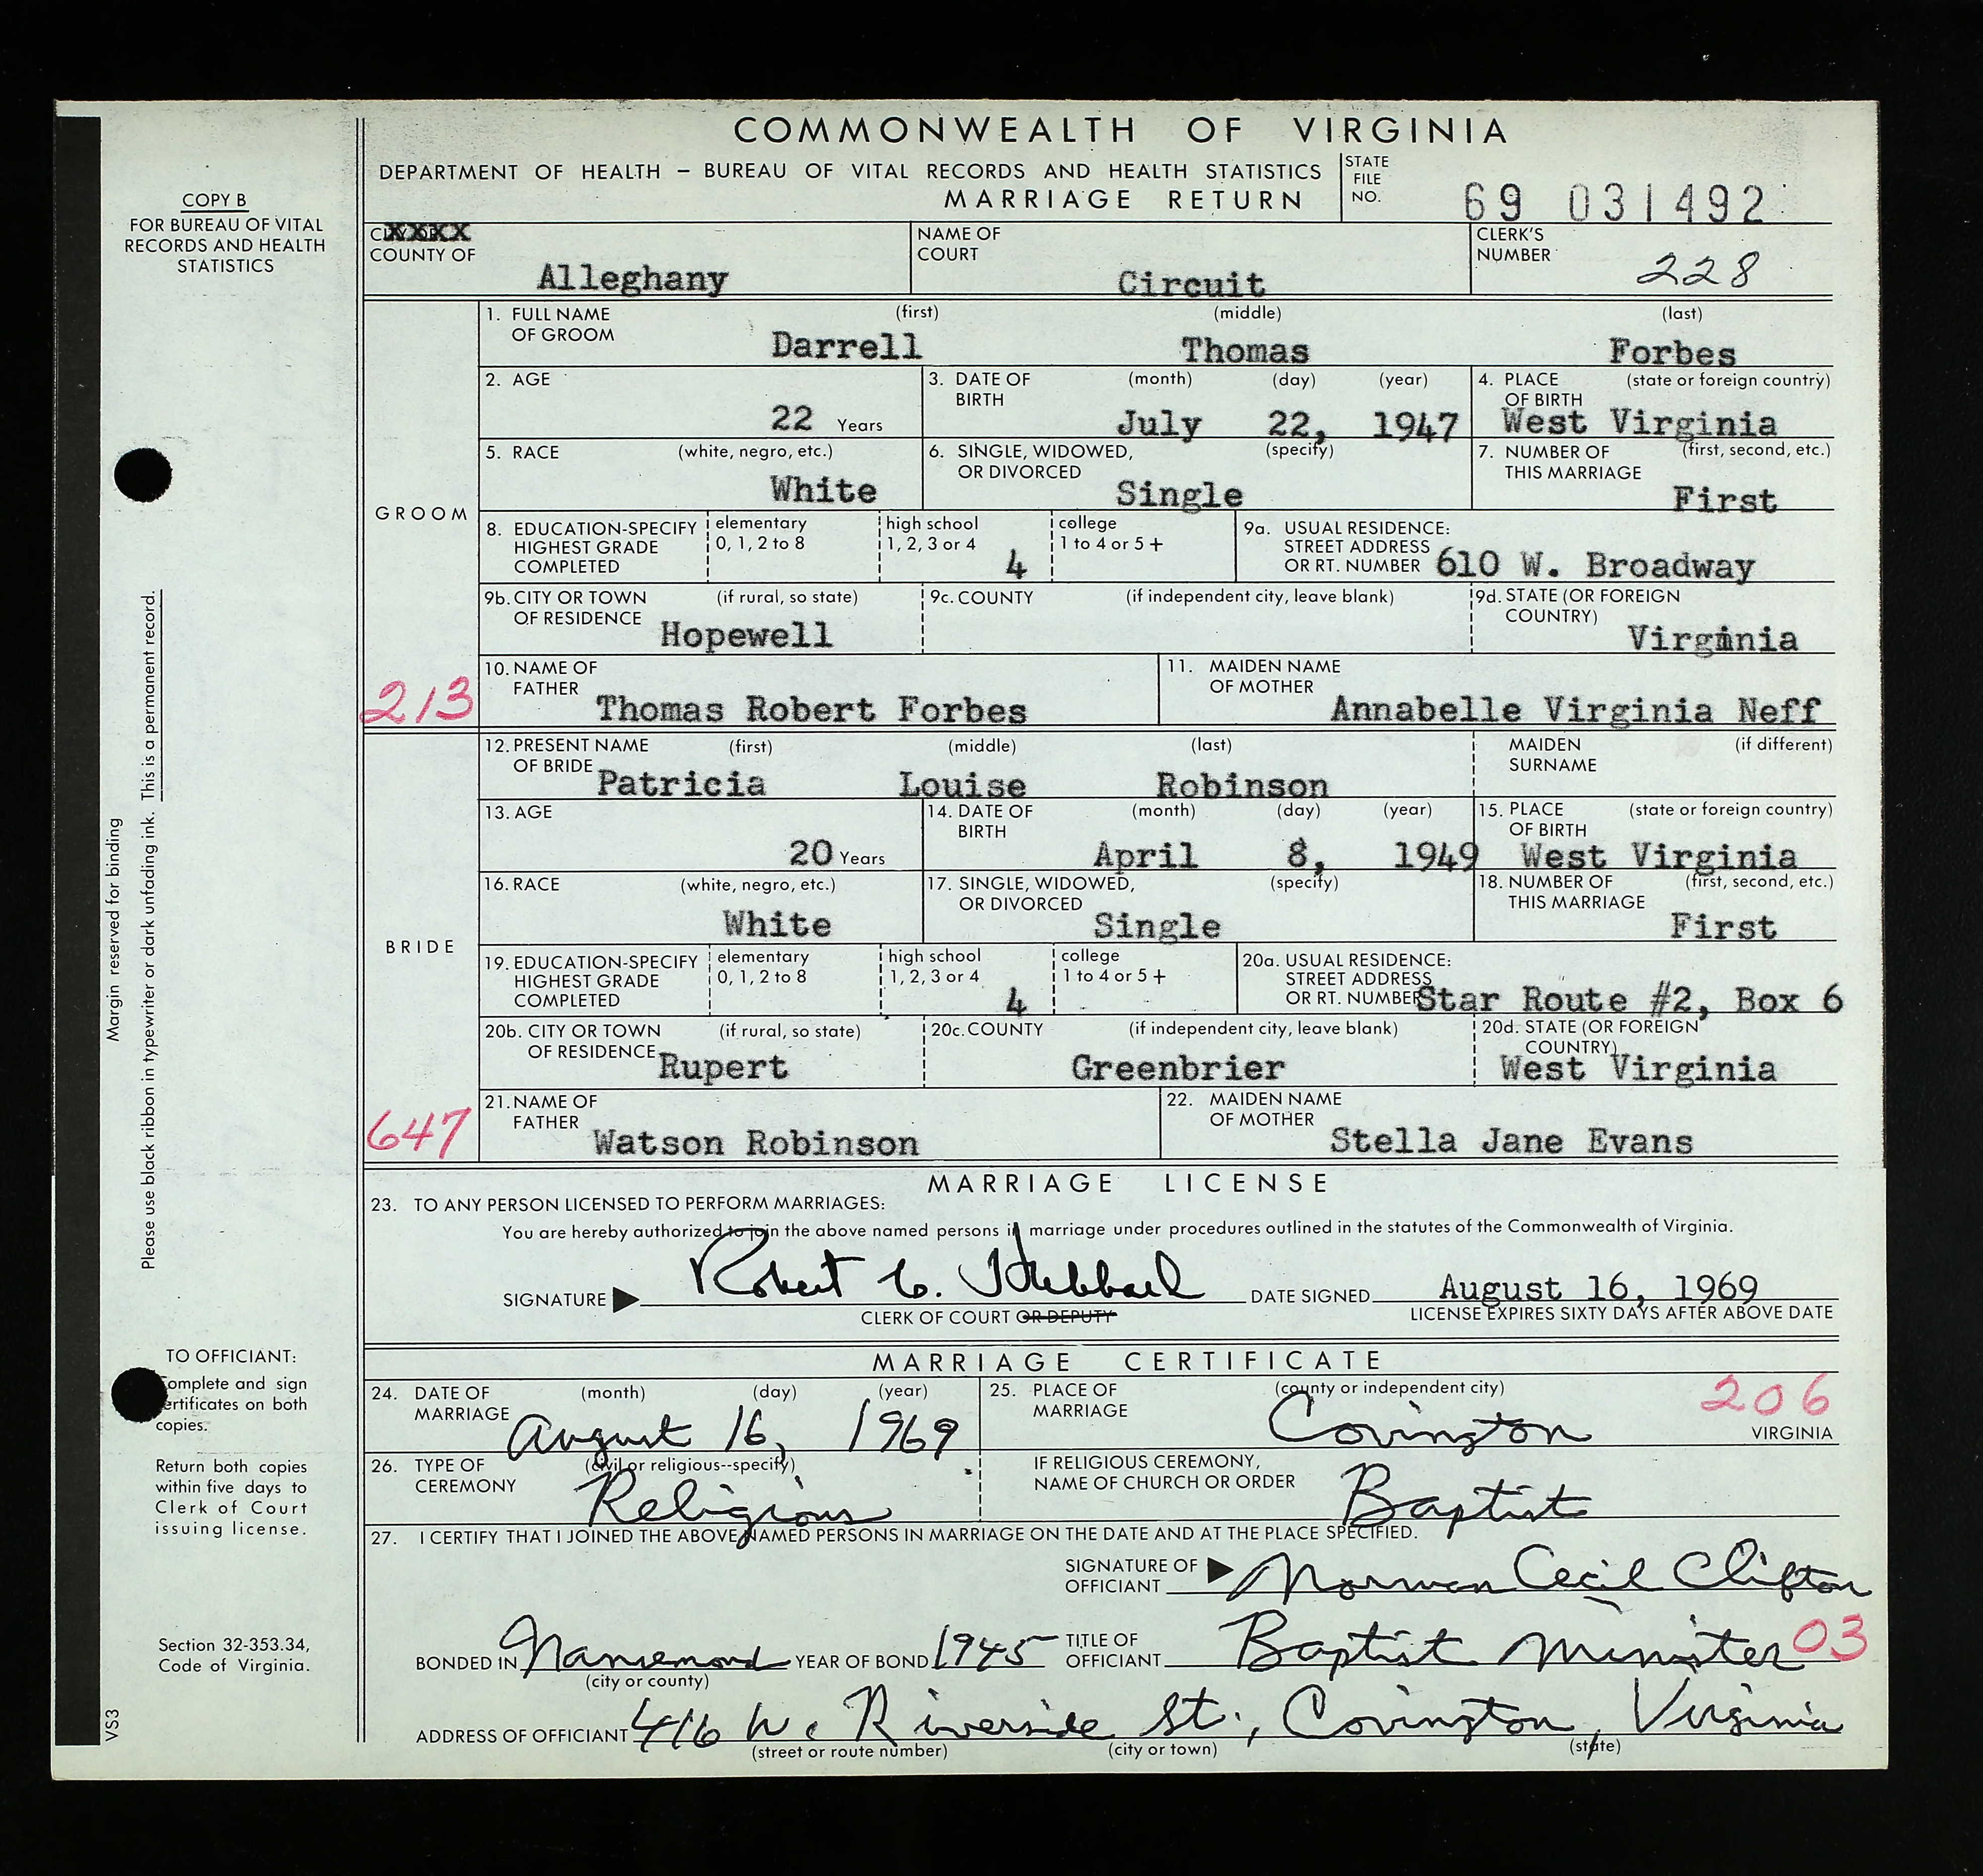 COMMONWEALTH OF VIRGINIA
DEPARTMENT OF HEALTH – BUREAU OF VITAL RECORDS AND HEALTH STATISTICS
MARRIAGE RETURN
STATE FILE NO. 69 031492
COPY B
FOR BUREAU OF VITAL
RECORDS AND HEALTH
STATISTICS
XXXX
COUNTY OF Alleghany
NAME OF COURT Circuit
CLERK'S NUMBER 228
GROOM
213
1. FULL NAME OF GROOM (first) Darrell (middle) Thomas (last) Forbes
2. AGE 22 Years
3. DATE OF BIRTH (month) (day) (year) July 22, 1947
4. PLACE OF BIRTH (state or foreign country) West Virginia
5. RACE (white, negro, etc.) White
6. SINGLE, WIDOWED, OR DIVORCED (specify) Single
7. NUMBER OF THIS MARRIAGE (first, second, etc.) First
8. EDUCATION-SPECIFY HIGHEST GRADE COMPLETED elementary 0, 1, 2 to 8 high school 1, 2, 3 or 4 4 college 1 to 4 or 5+
9a. USUAL RESIDENCE: STREET ADDRESS OR RT. NUMBER 610 W. Broadway
9b. CITY OR TOWN OF RESIDENCE (if rural, so state) Hopewell
9c. COUNTY (if independent city, leave blank)
9d. STATE (OR FOREIGN COUNTRY) Virginia
10. NAME OF FATHER Thomas Robert Forbes
11. MAIDEN NAME OF MOTHER Annabelle Virginia Neff
BRIDE
647
12. PRESENT NAME OF BRIDE (first) Patricia (middle) Louise (last) Robinson
MAIDEN SURNAME (if different)
13. AGE 20 Years
14. DATE OF BIRTH (month) (day) (year) April 8, 1949
15. PLACE OF BIRTH (state or foreign country) West Virginia
16. RACE (white, negro, etc.) White
17. SINGLE, WIDOWED, OR DIVORCED (specify) Single
18. NUMBER OF THIS MARRIAGE (first, second, etc.) First
19. EDUCATION-SPECIFY HIGHEST GRADE COMPLETED elementary 0, 1, 2 to 8 high school 1, 2, 3 or 4 4 college 1 to 4 or 5+
20a. USUAL RESIDENCE: STREET ADDRESS OR RT. NUMBER Star Route #2, Box 6
20b. CITY OR TOWN OF RESIDENCE (if rural, so state) Rupert
20c. COUNTY (if independent city, leave blank) Greenbrier
20d. STATE (OR FOREIGN COUNTRY) West Virginia
21. NAME OF FATHER Watson Robinson
22. MAIDEN NAME OF MOTHER Stella Jane Evans
MARRIAGE LICENSE
23. TO ANY PERSON LICENSED TO PERFORM MARRIAGES:
You are hereby authorized to join the above named persons in marriage under procedures outlined in the statutes of the Commonwealth of Virginia.
SIGNATURE Robert C. Hubbard DATE SIGNED August 16, 1969
CLERK OF COURT OR DEPUTY
LICENSE EXPIRES SIXTY DAYS AFTER ABOVE DATE
MARRIAGE CERTIFICATE
24. DATE OF MARRIAGE (month) (day) (year) August 16, 1969
25. PLACE OF MARRIAGE (county or independent city) Covington 206 VIRGINIA
26. TYPE OF CEREMONY (civil or religious--specify) Religious
IF RELIGIOUS CEREMONY, NAME OF CHURCH OR ORDER Baptist
27. I CERTIFY THAT I JOINED THE ABOVE NAMED PERSONS IN MARRIAGE ON THE DATE AND AT THE PLACE SPECIFIED.
SIGNATURE OF OFFICIANT Norman Cecil Clifton
BONDED IN Nansemond (city or county) YEAR OF BOND 1945 TITLE OF OFFICIANT Baptist Minister 03
ADDRESS OF OFFICIANT 416 W. Riverside St., Covington, Virginia
(street or route number) (city or town) (state)
Margin reserved for binding
Please use black ribbon in typewriter or dark unfading ink. This is a permanent record.
TO OFFICIANT:
omplete and sign
ertificates on both
copies.
Return both copies
within five days to
Clerk of Court
issuing license.
Section 32-353.34,
Code of Virginia.
VS3